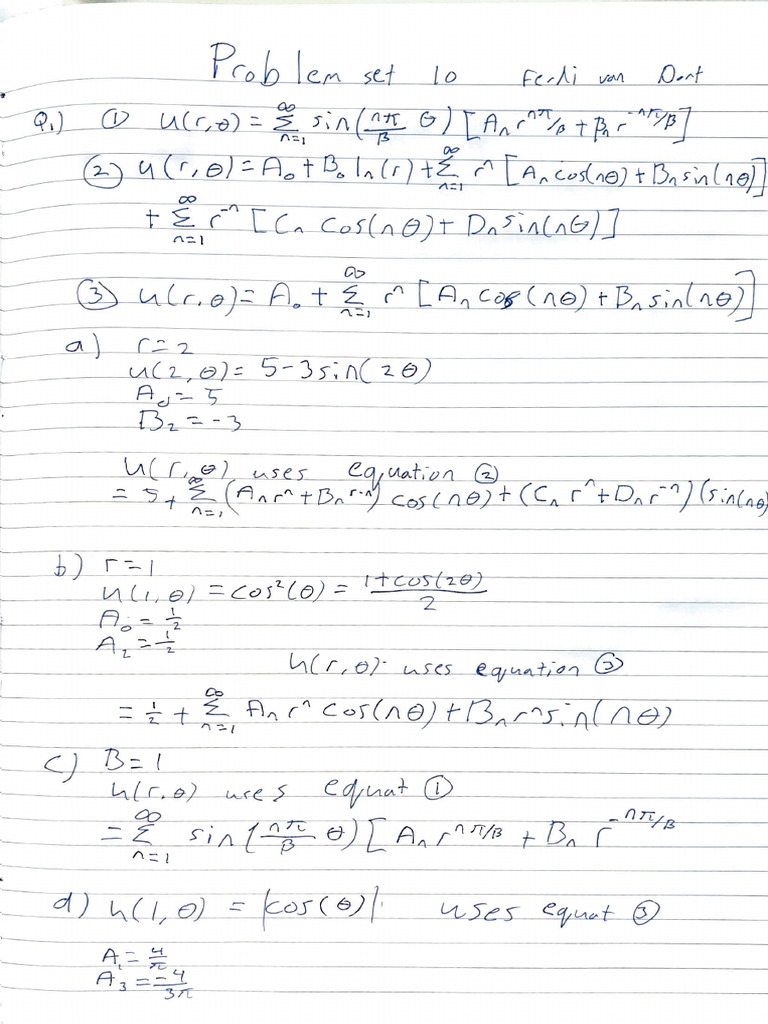 Problem set 10 Ferdi van
Q1) ① u(r,θ) = ∑_{n=1}^{∞} sin(nπ/β θ) [A_n r^{nπ/β} + B_n r^{-nπ/β}]
② u(r,θ) = A_0 + B_0 ln(r) + ∑_{n=1}^{∞} r^n [A_n cos(nθ) + B_n sin(nθ)]
+ ∑_{n=1}^{∞} r^{-n} [C_n cos(nθ) + D_n sin(nθ)]
③ u(r,θ) = A_0 + ∑_{n=1}^{∞} r^n [A_n cos(nθ) + B_n sin(nθ)]
a) r=2
u(2,θ) = 5-3sin(2θ)
A_0 = 5
B_2 = -3
u(r,θ) uses equation ②
= 5 + ∑_{n=1}^{∞} (A_n r^n + B_n r^{-n}) cos(nθ) + (C_n r^n + D_n r^{-n}) (sin(nθ)
b) r=1
u(1,θ) = cos²(θ) = (1+cos(2θ))/2
A_0 = 1/2
A_2 = 1/2
u(r,θ) uses equation ③
= 1/2 + ∑_{n=1}^{∞} A_n r^n cos(nθ) + B_n r^n sin(nθ)
c) B=1
u(r,θ) uses equat ①
= ∑_{n=1}^{∞} sin(nπ/β θ) [A_n r^{nπ/β} + B_n r^{-nπ/β}
d) u(1,θ) = |cos(θ)|. uses equat ③
A_1 = 4/π
A_3 = -4/3π